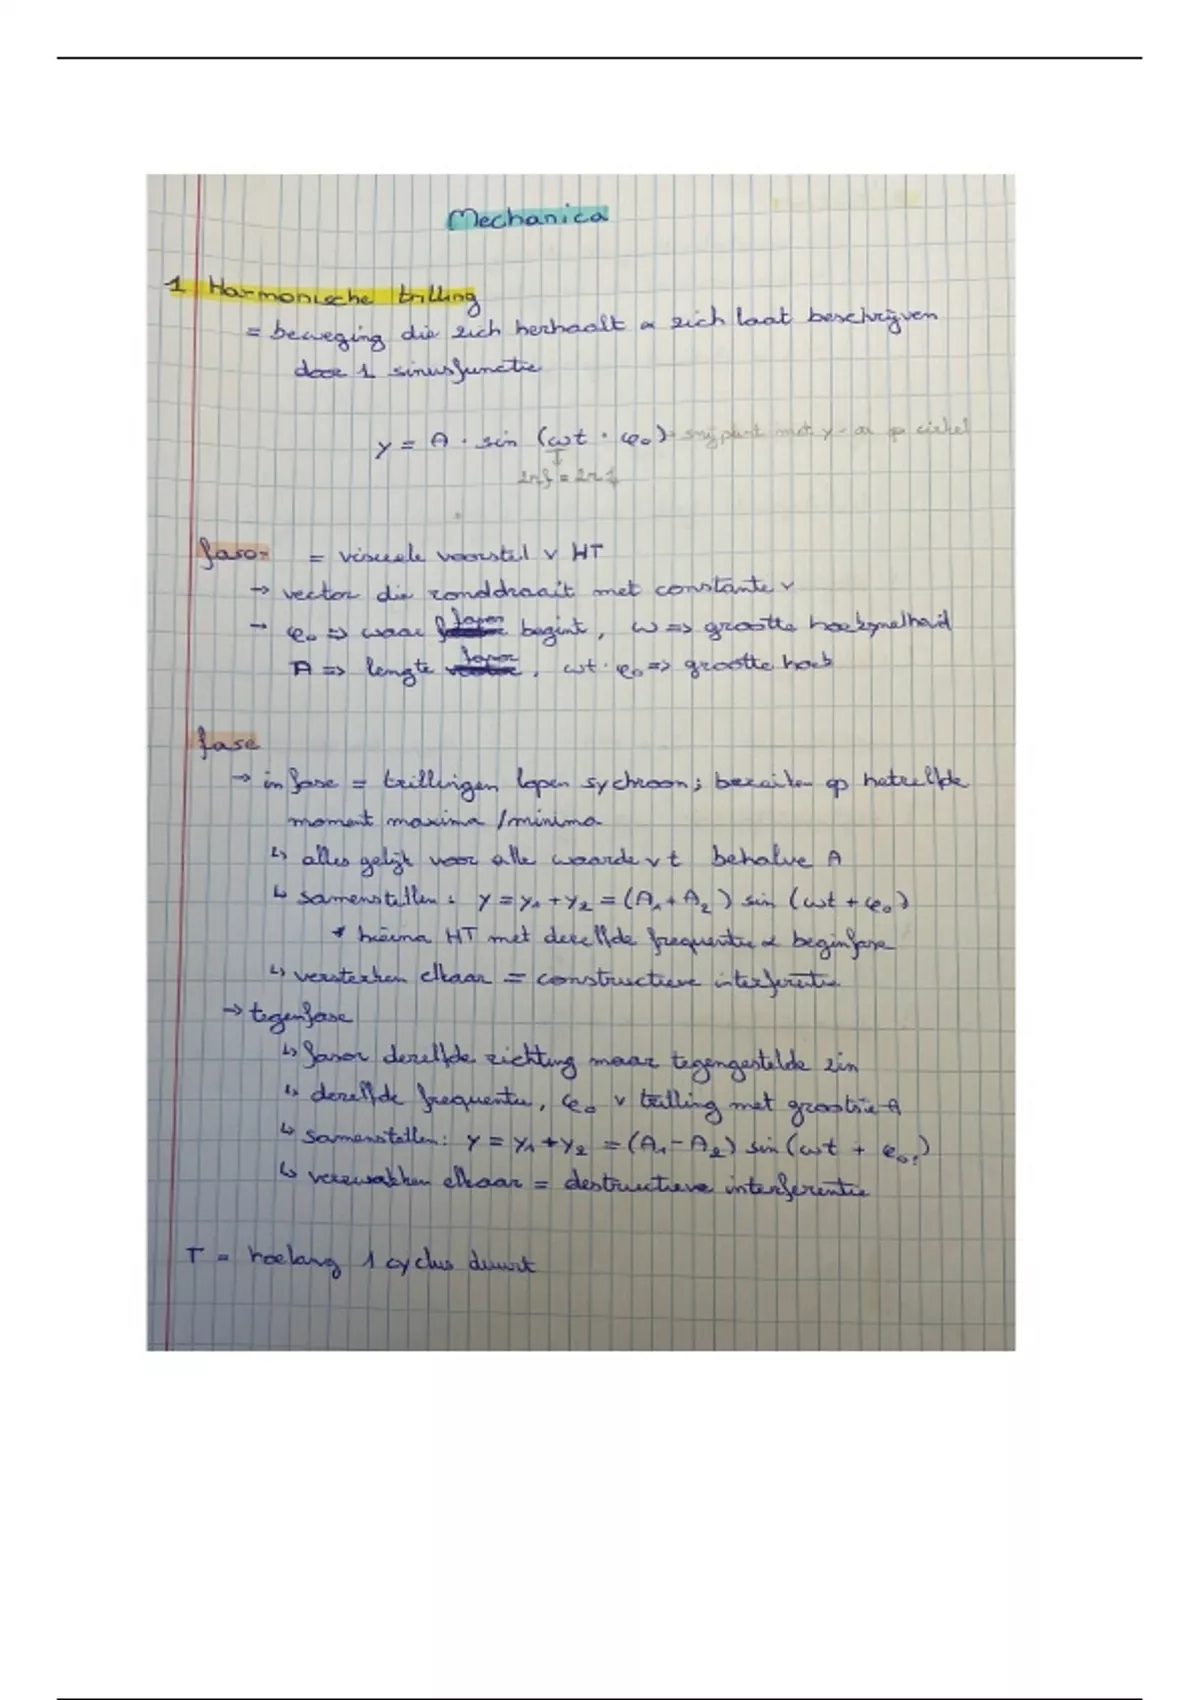 Mechanica
1 Harmonische trilling
= beweging die zich herhaalt & zich laat beschrijven
door 1 sinusfunctie
y = A · sin (ωt · φ₀) → snijpunt met y-as op cirkel
2πf = 2π
fasor = visuele voorstel v HT
→ vector die ronddraait met constante v
→ φ₀ => waar fasor begint, ω => grootte hoeksnelheid
A => lengte fasor, ωt · φ₀ => grootte hoek
fase
→ in fase = trillingen lopen sychroon; bereiken op hetzelfde
moment maxima / minima
↳ alles gelijk voor alle waarde v t behalve A
↳ samenstellen: y = y₁ + y₂ = (A₁ + A₂) sin (ωt + φ₀)
* hierna HT met dezelfde frequentie & beginfase
↳ versterken elkaar = constructieve interferentie
→ tegenfase
↳ fasor dezelfde richting maar tegengestelde zin
↳ dezelfde frequentie, φ₀ v trilling met grootste A
↳ samenstellen: y = y₁ + y₂ = (A₁ - A₂) sin (ωt + φ₀,)
↳ verzwakken elkaar = destructieve interferentie
T = hoelang 1 cyclus duurt